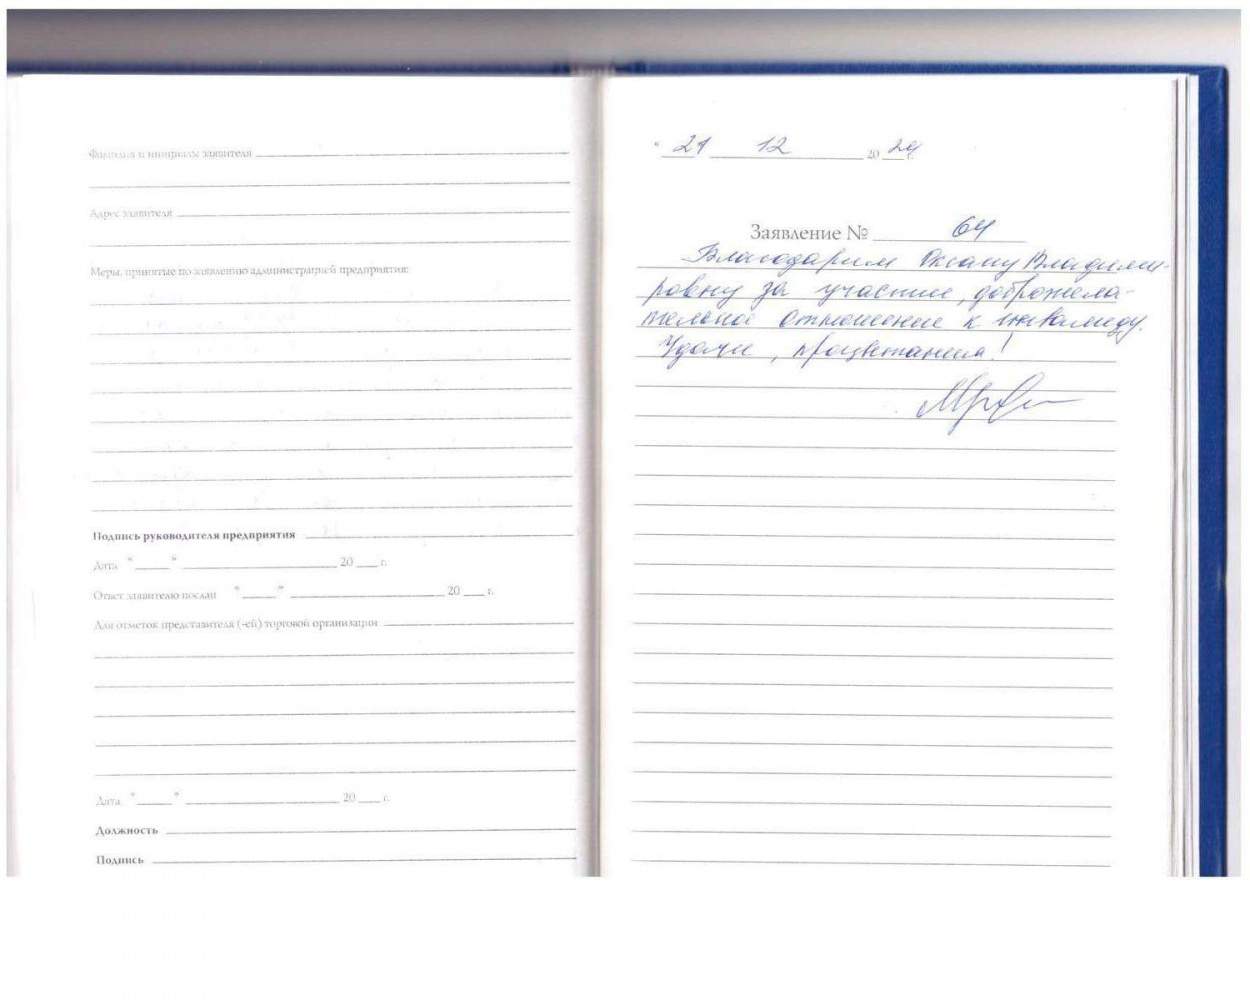 Фамилия и инициалы заявителя
Адрес заявителя
Меры, принятые по заявлению администрацией предприятия:
Подпись руководителя предприятия
Дата " " 20 г.
Ответ заявителю послан " " 20 г.
Для отметок представителя (-ей) торговой организации
Дата " " 20 г.
Должность
Подпись
" 21 12 20 24 г.
Заявление № 64
Благодарим Оксану Владими-
ровну за участие, доброжела-
тельное отношение к инвалиду.
Удачи, процветания!